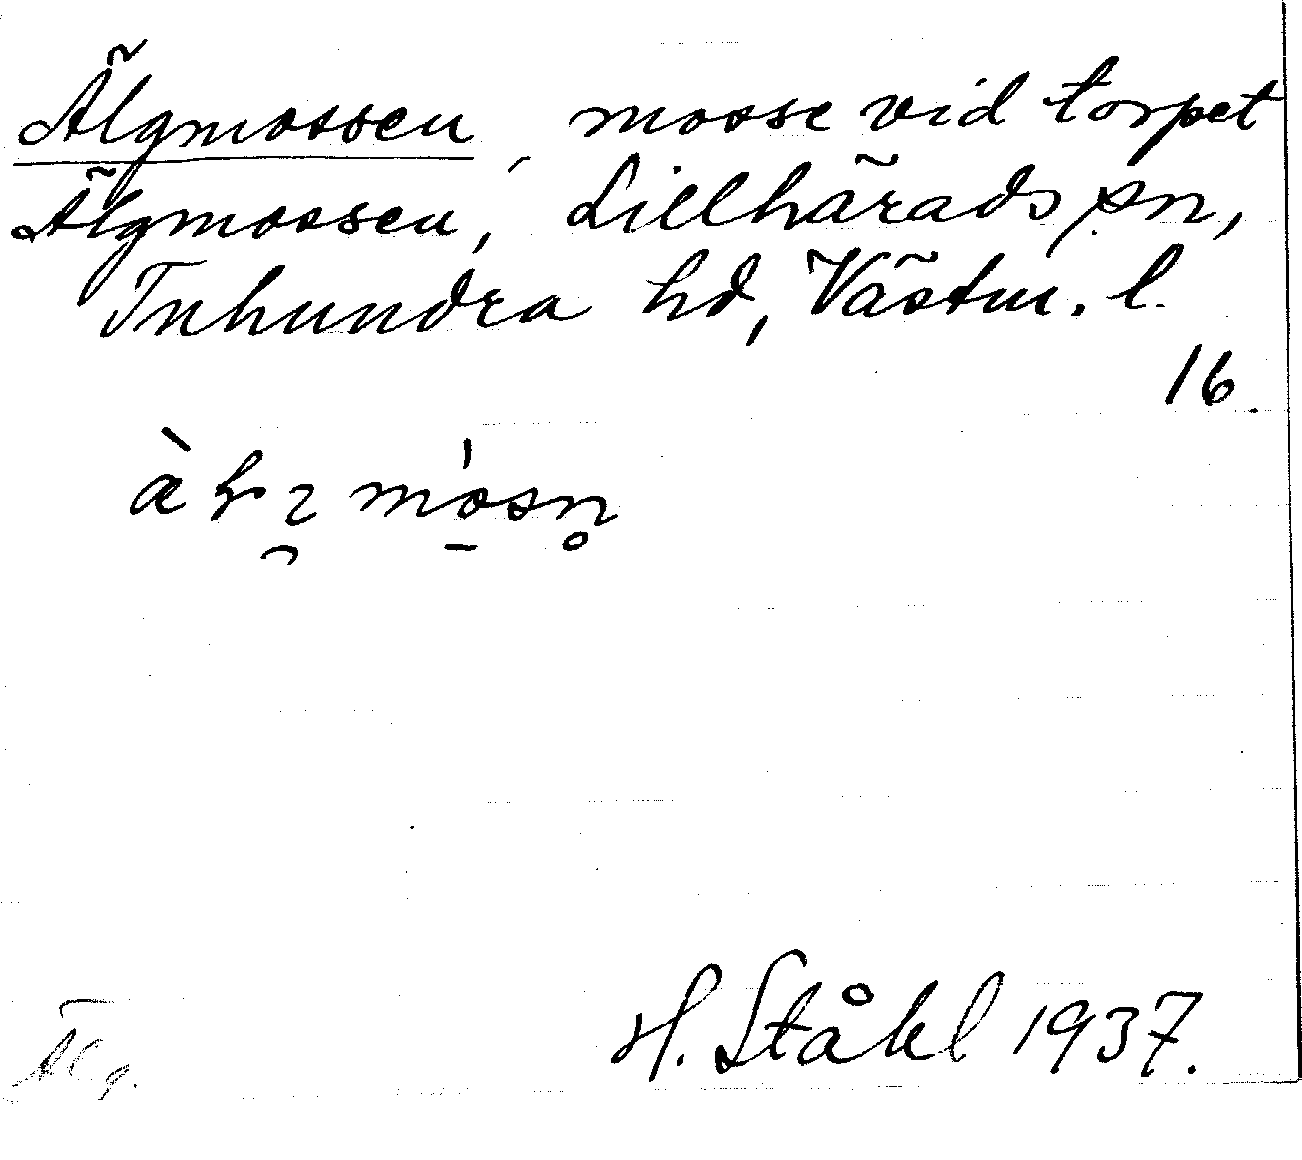 Älgmossen, mosse vid torpet
Älgmossen, Lillhärads sn,
Tuhundra hd, Västm. l.
16.
H. Ståhl 1937.
Älg.